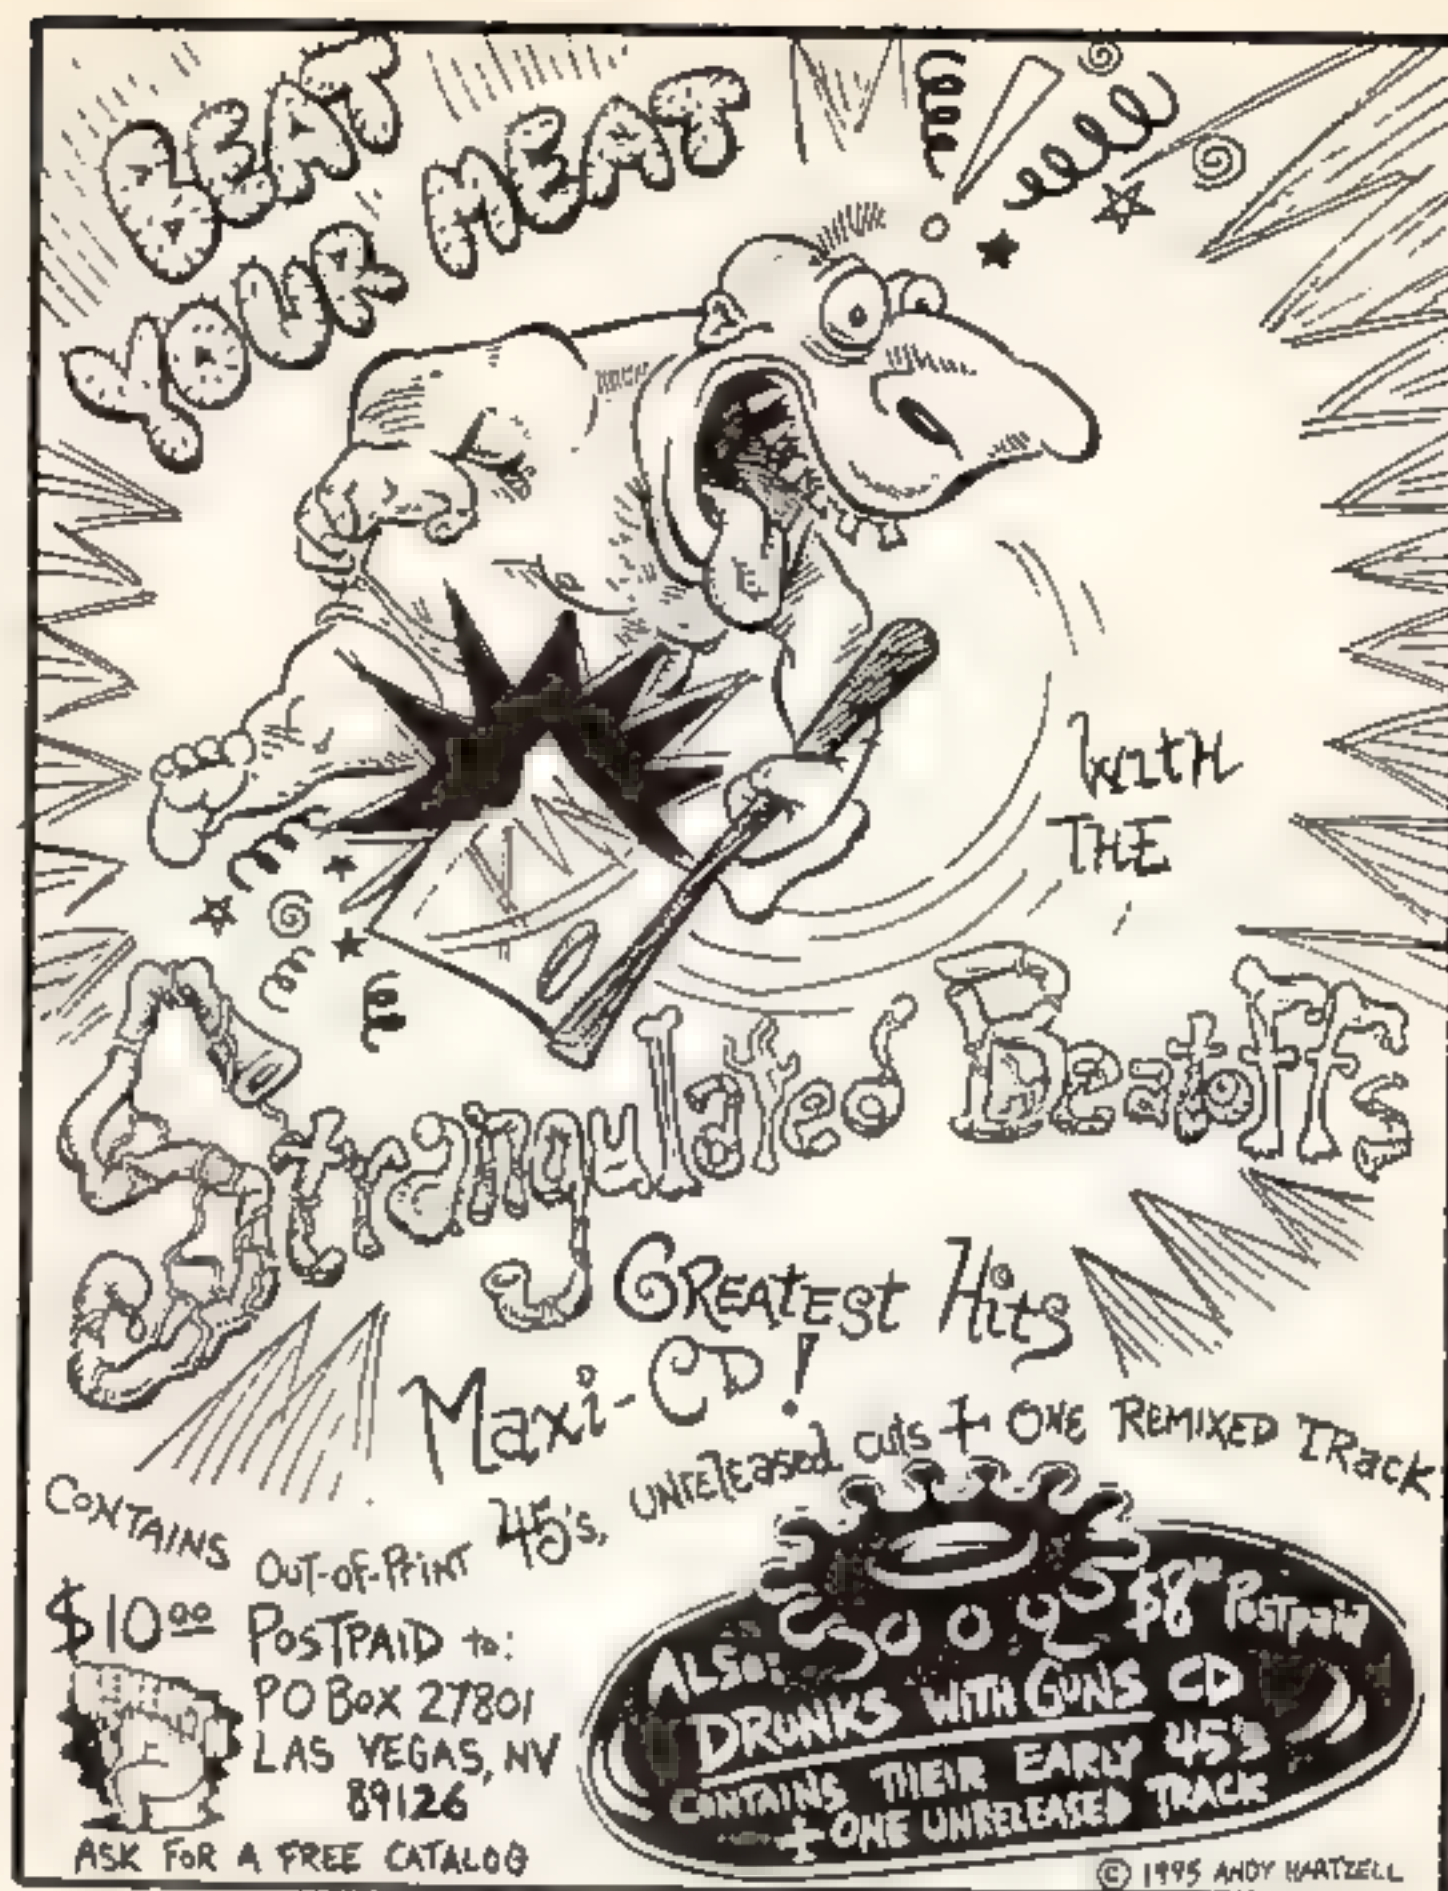 BEAT
YOUR MEAT
WITH
THE
Strangulated Beatoffs
GREATEST Hits
Maxi-CD!
CONTAINS OUT-OF-PRINT 45's, UNRELEASED cuts + ONE REMIXED TRACK
$10.00 POSTPAID to:
PO BOX 27801
LAS VEGAS, NV
89126
ASK FOR A FREE CATALOG
ALSO: $8 Postpaid
DRUNKS WITH GUNS CD
CONTAINS THEIR EARLY 45's
+ ONE UNRELEASED TRACK
© 1995 ANDY HARTZELL